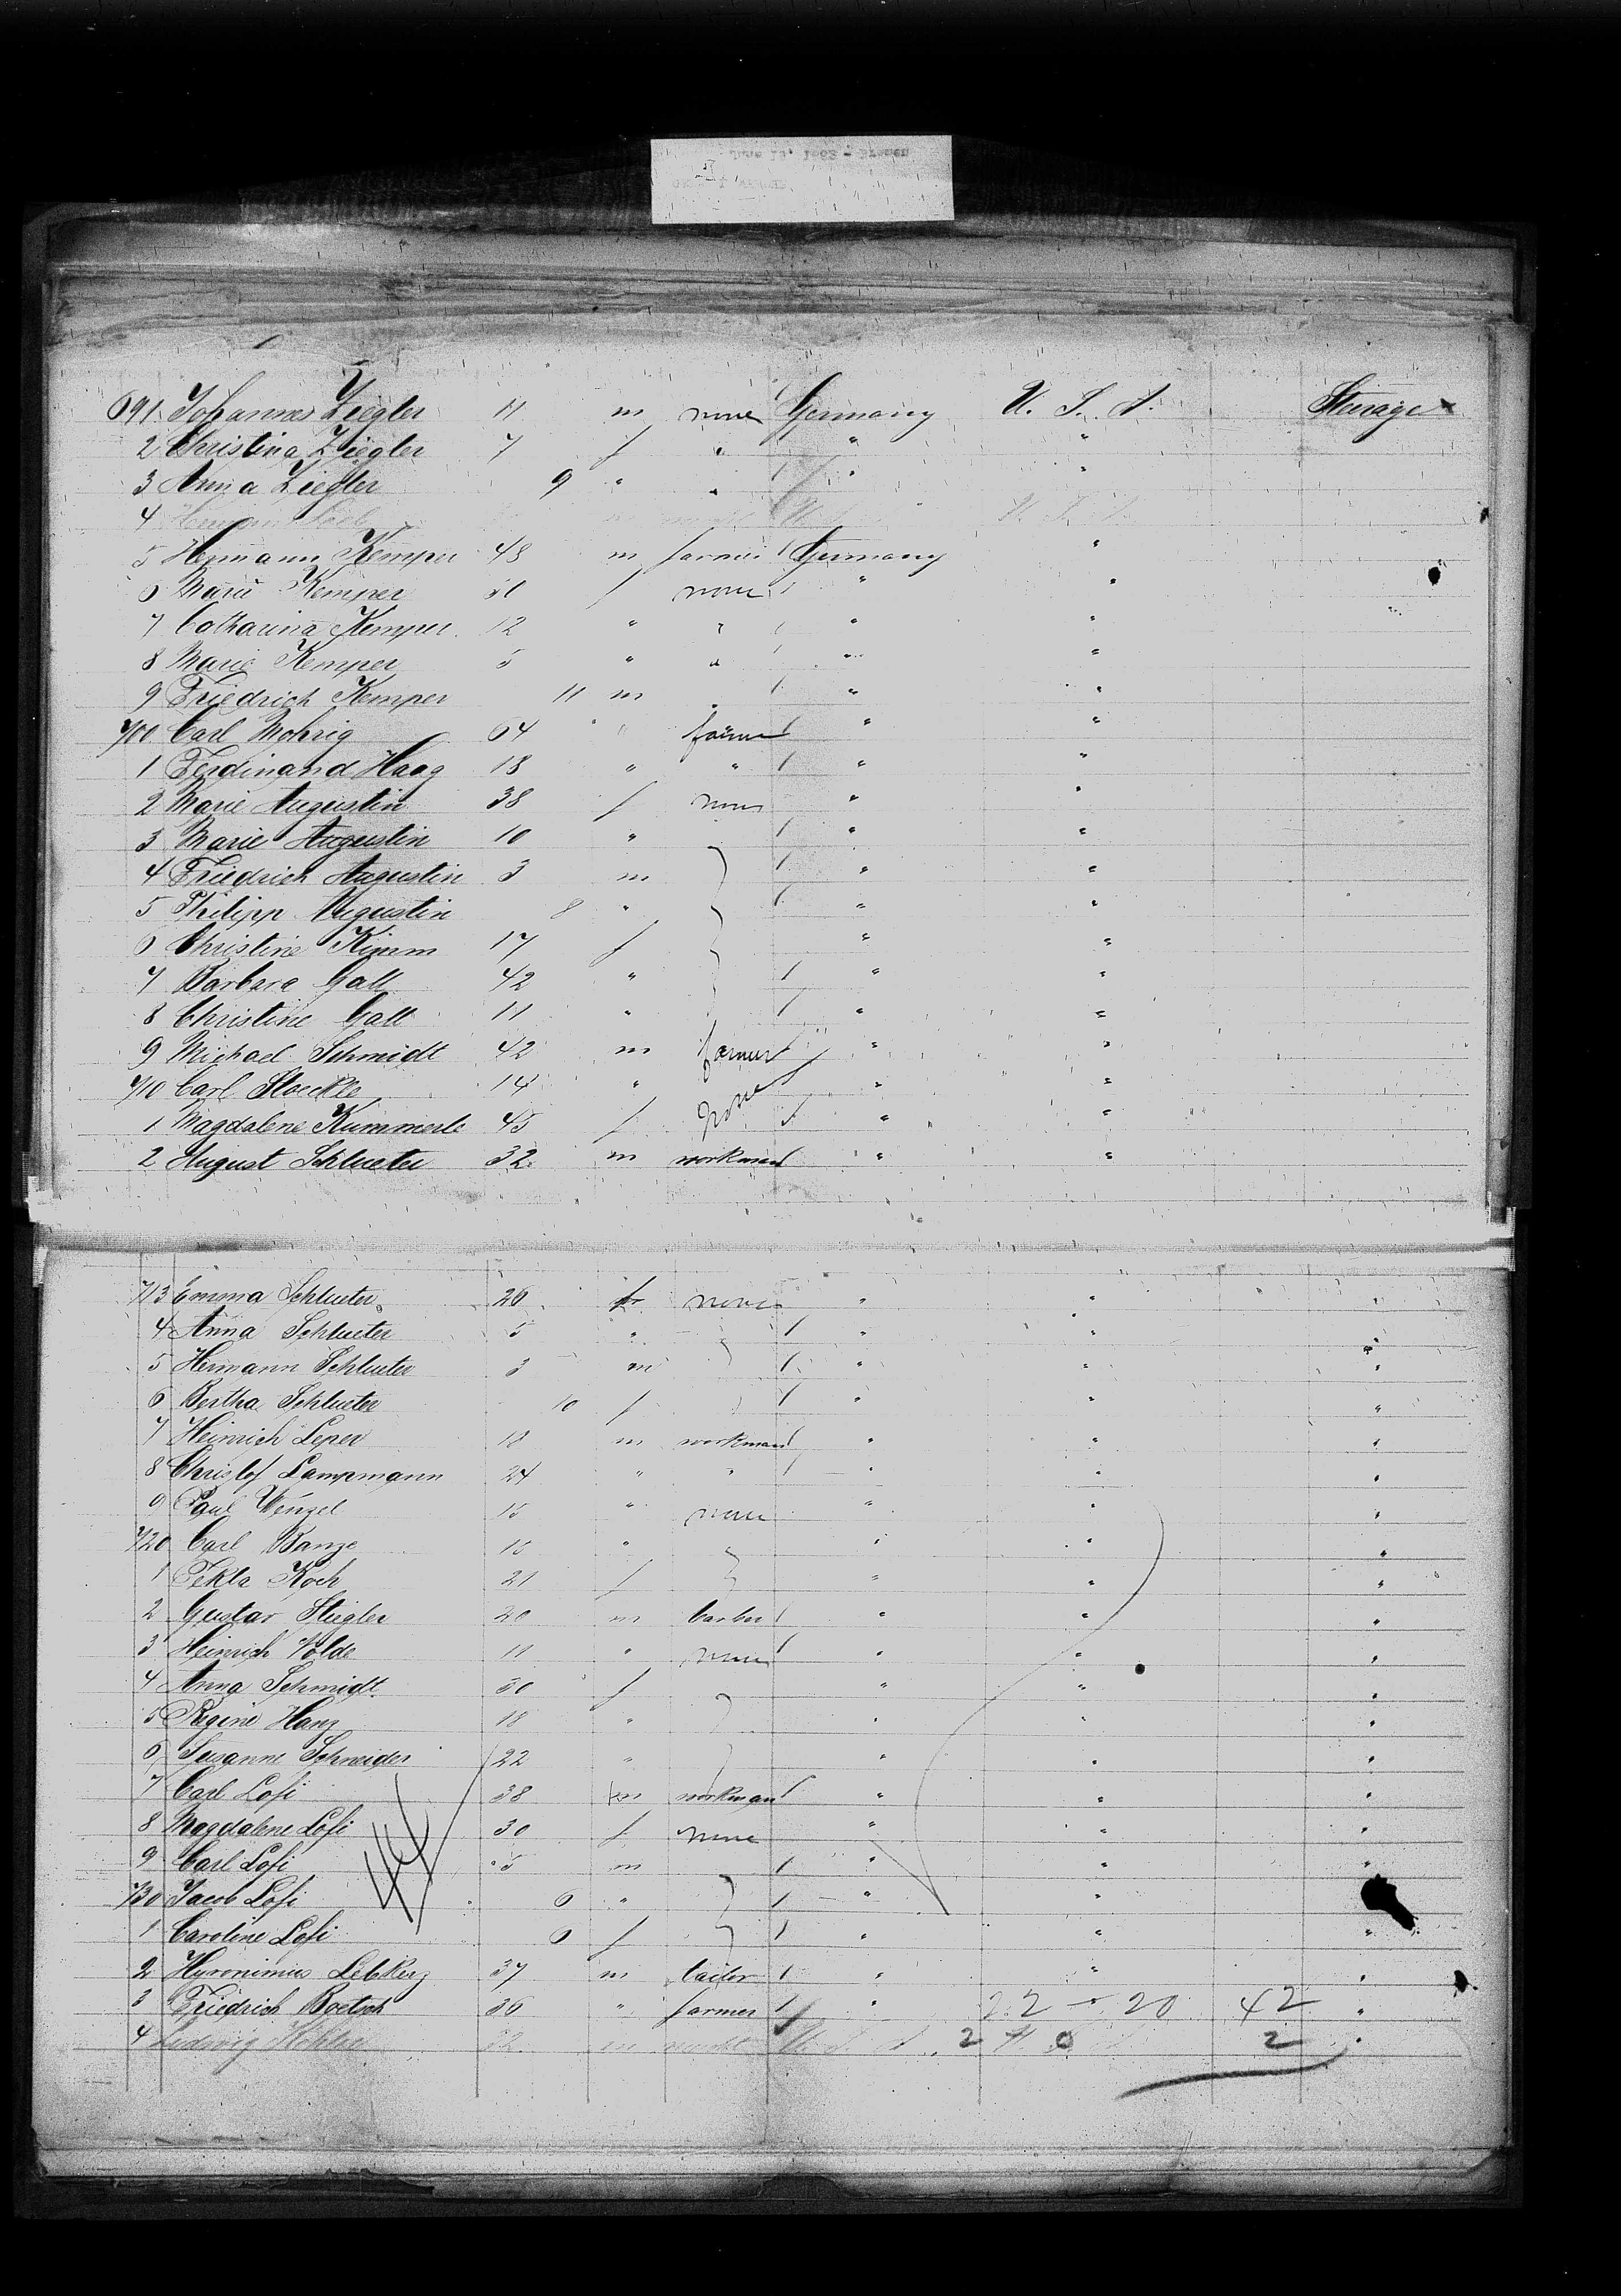 June 19, 1882 - Bremen
691 Johannes Ziegler 11 m none Germany U. S. A. Steerage
2 Christina Ziegler 7 f " " "
3 Anna Ziegler 9 " " " "
4 U. S. A.
5 Hermann Kemper 48 m farmer Germany "
6 Marie Kemper 31 f none " "
7 Catharina Kemper 12 " " " "
8 Marie Kemper 5 " " " "
9 Friedrich Kemper 11 m " " "
700 Carl Mohrig 64 " farmer " "
1 Ferdinand Haag 18 " " " "
2 Marie Augustin 38 f none " "
3 Marie Augustin 10 " " "
4 Friedrich Augustin 3 m " "
5 Philipp Augustin 8 " " "
6 Christine Kimm 17 f " "
7 Barbara Gall 42 " " "
8 Christine Gall 11 " " "
9 Michael Schmidt 42 m farmer " "
710 Carl Stoeckle 14 " none " "
1 Magdalene Kummerle 45 f " "
2 August Schlueter 32 m workman " "
713 Emma Schlueter 26 f none " " "
4 Anna Schlueter 5 " " " "
5 Hermann Schlueter 3 m " " "
6 Bertha Schlueter 10 f " " "
7 Heinrich Leper 18 m workman " " "
8 Christof Lampmann 24 " " " " "
9 Paul Wenzel 15 " none " " "
720 Carl Banze 15 " " " "
1 Tekla Koch 21 f " " "
2 Gustav Stiegler 20 m barber " " "
3 Heinrich Nolde 11 " none " " "
4 Anna Schmidt 30 f " " "
5 Regine Hanz 18 " " " "
6 Susanne Schneider 22 " " " "
7 Carl Lofi 38 m workman " " "
8 Magdalene Lofi 30 f none " " "
9 Carl Lofi 5 m " " "
730 Jacob Lofi 0 " " "
1 Caroline Lofi 0 f " " "
2 Hyronimus Lebkerz 37 m tailor " " "
3 Friedrich Boetsch 36 " farmer " 22 - 20 42 "
4 Ludwig 32 m U. S. A. 2 0 2 "